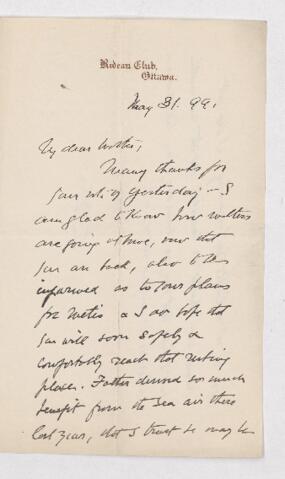 Rideau Club,
Ottawa.
May 31. 99.
My dear Mother,
Many thanks for
your note of yesterday - I
am glad to know how matters
are going at home, now that
you are back, also to be
informed as to your plans
for Metis & I do hope that
you will soon safely &
comfortably reach that resting
place. Father derived so much
benefit from the sea air there
last year, that I trust he may be